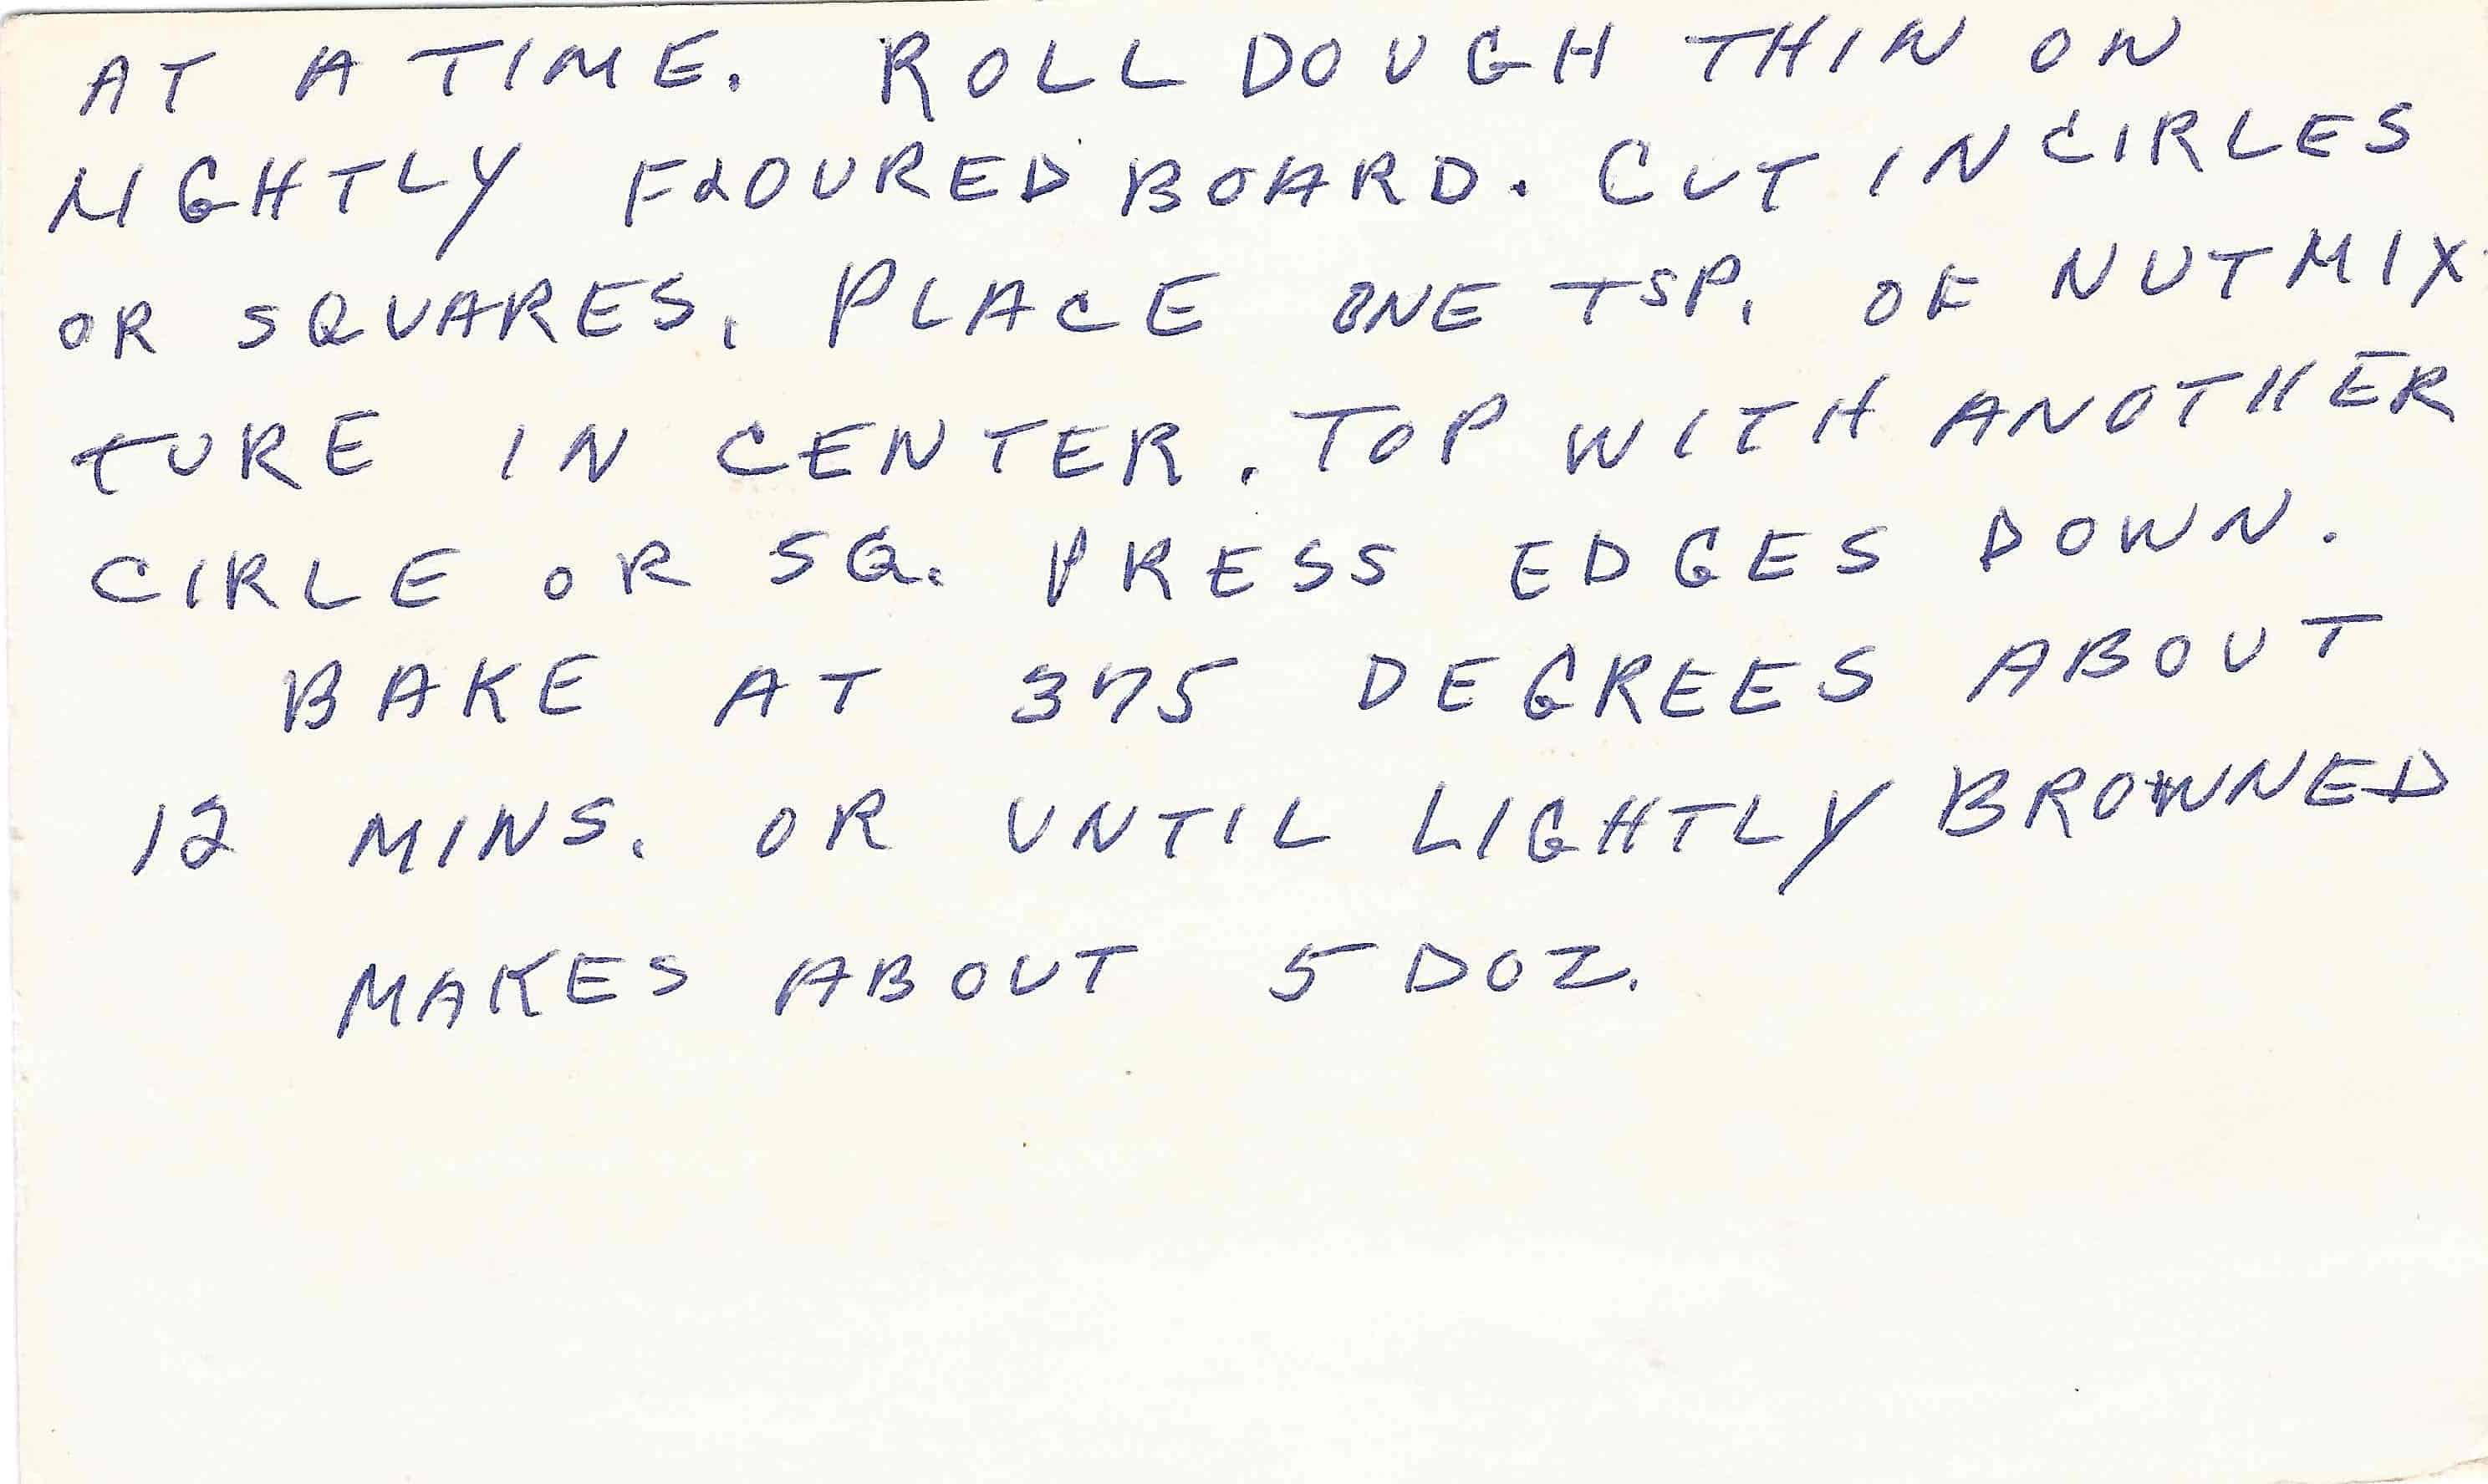 AT A TIME. ROLL DOUGH THIN ON
LIGHTLY FLOURED BOARD. CUT IN CIRLES
OR SQUARES. PLACE ONE TSP. OF NUTMIX
TURE IN CENTER. TOP WITH ANOTHER
CIRLE OR SQ. PRESS EDGES DOWN.
BAKE AT 375 DEGREES ABOUT
12 MINS. OR UNTIL LIGHTLY BROWNED
MAKES ABOUT 5 DOZ.